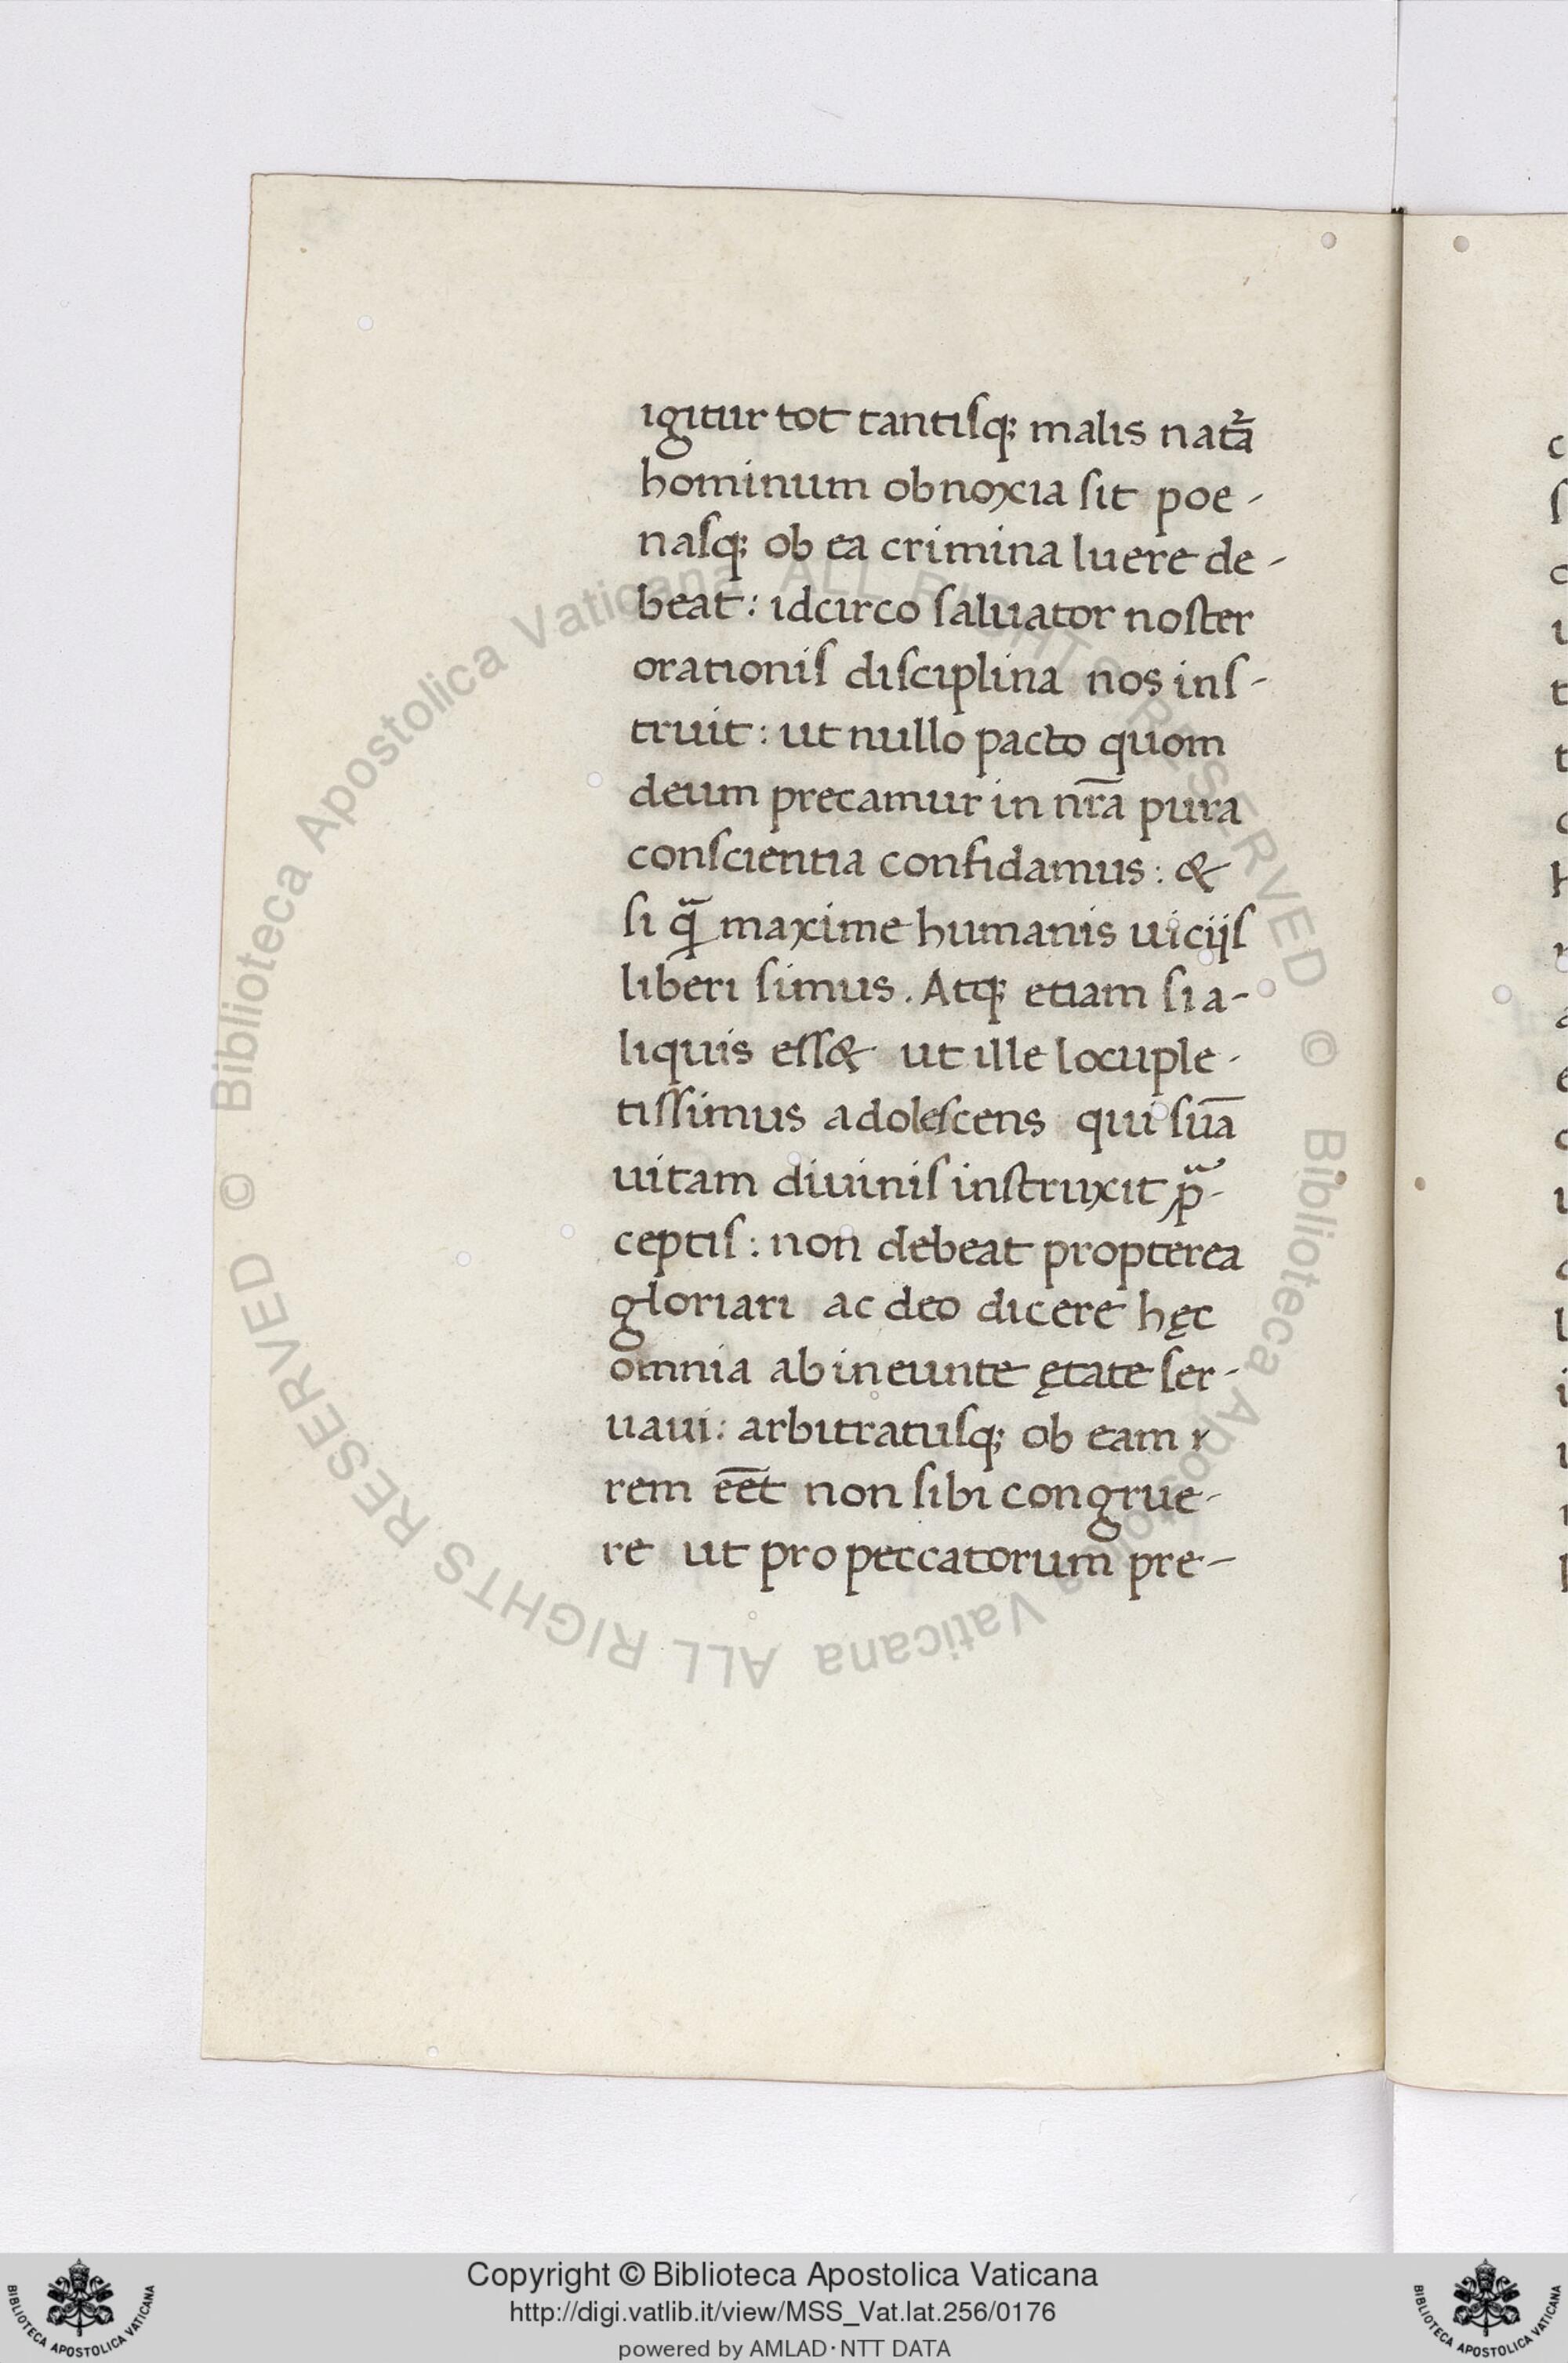 igitur tot tantisq; malis natr̄a
hominum obnoxia sit poe-
nasq; ob ea crimina luere de-
beat: idcirco saluator noster
orationis disciplina nos ins-
truit: ut nullo pacto quom
deum precamur in nr̄a pura
conscientia confidamus: &
si qᷓ maxime humanis uiciis
liberi simus. Atq; etiam si a-
liquis ess& ut ille locuple-
tissimus adolescens qui suā
uitam diuinis instruxit p̄-
ceptis: non debeat propterea
gloriari ac deo dicere hęc
omnia ab ineunte ętate ser-
uaui: arbitratusq; ob eam r
rem eēt non sibi congrue-
re ut pro peccatorum pre-
© Biblioteca Apostolica Vaticana ALL RIGHTS RESERVED © Biblioteca Apostolica Vaticana ALL RIGHTS RESERVED
Copyright © Biblioteca Apostolica Vaticana
http://digi.vatlib.it/view/MSS_Vat.lat.256/0176
powered by AMLAD·NTT DATA
BIBLIOTECA APOSTOLICA VATICANA
BIBLIOTECA APOSTOLICA VATICANA